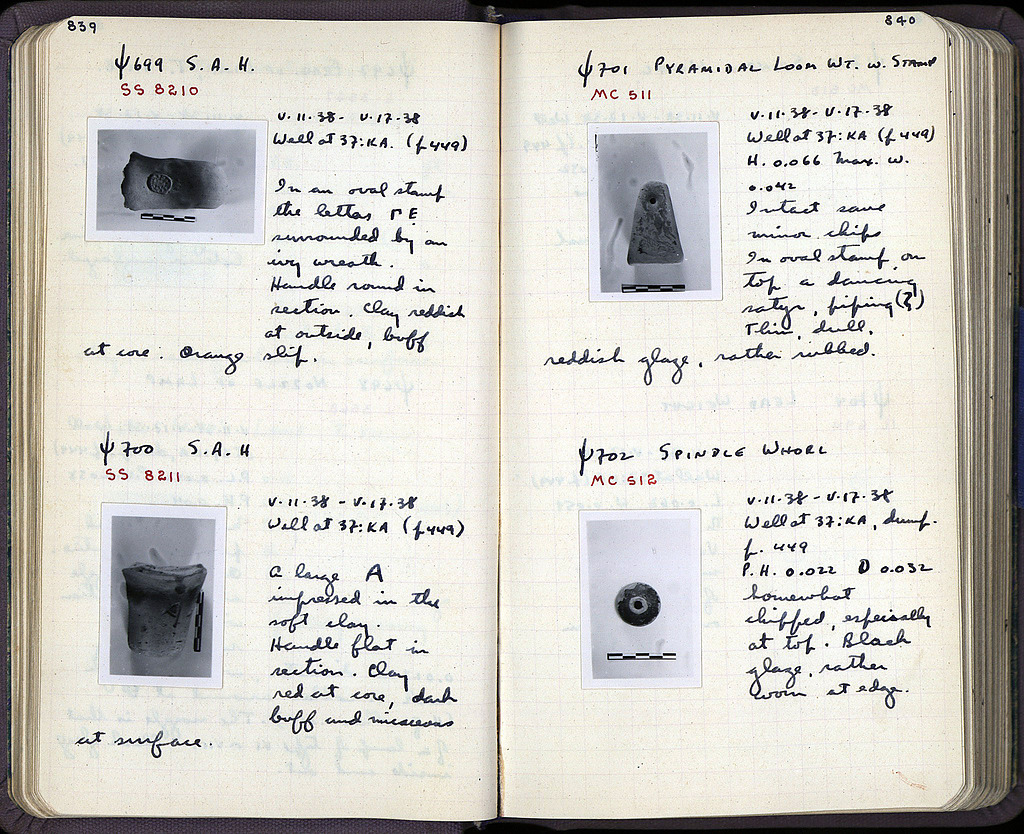 839
ψ699 S. A. H.
SS 8210
V-11-38 - V-17-38
Well at 37:KA. (p 449)
In an oval stamp
the letters ΓE
surrounded by an
ivy wreath.
Handle round in
section. Clay reddish
at outside, buff
at core. Orange slip.
ψ700 S. A. H
SS 8211
V-11-38 - V-17-38
Well at 37:KA (p 449)
A large A
impressed in the
soft clay.
Handle flat in
section. Clay
red at core, dark
buff and micaceous
at surface.
840
ψ701 PYRAMIDAL LOOM WT. W. STAMP
MC 511
V-11-38 - V-17-38
Well at 37:KA (p 449)
H. 0.066 Max. W.
0.042
Intact save
minor chips
In oval stamp on
top a dancing
satyr, piping (?)
Thin, dull,
reddish glaze, rather rubbed.
ψ702 SPINDLE WHORL
MC 512
V-11-38 - V-17-38
Well at 37:KA, dump.
p. 449
P.H. 0.022 D 0.032
Somewhat
chipped, especially
at top. Black
glaze, rather
worn at edge.